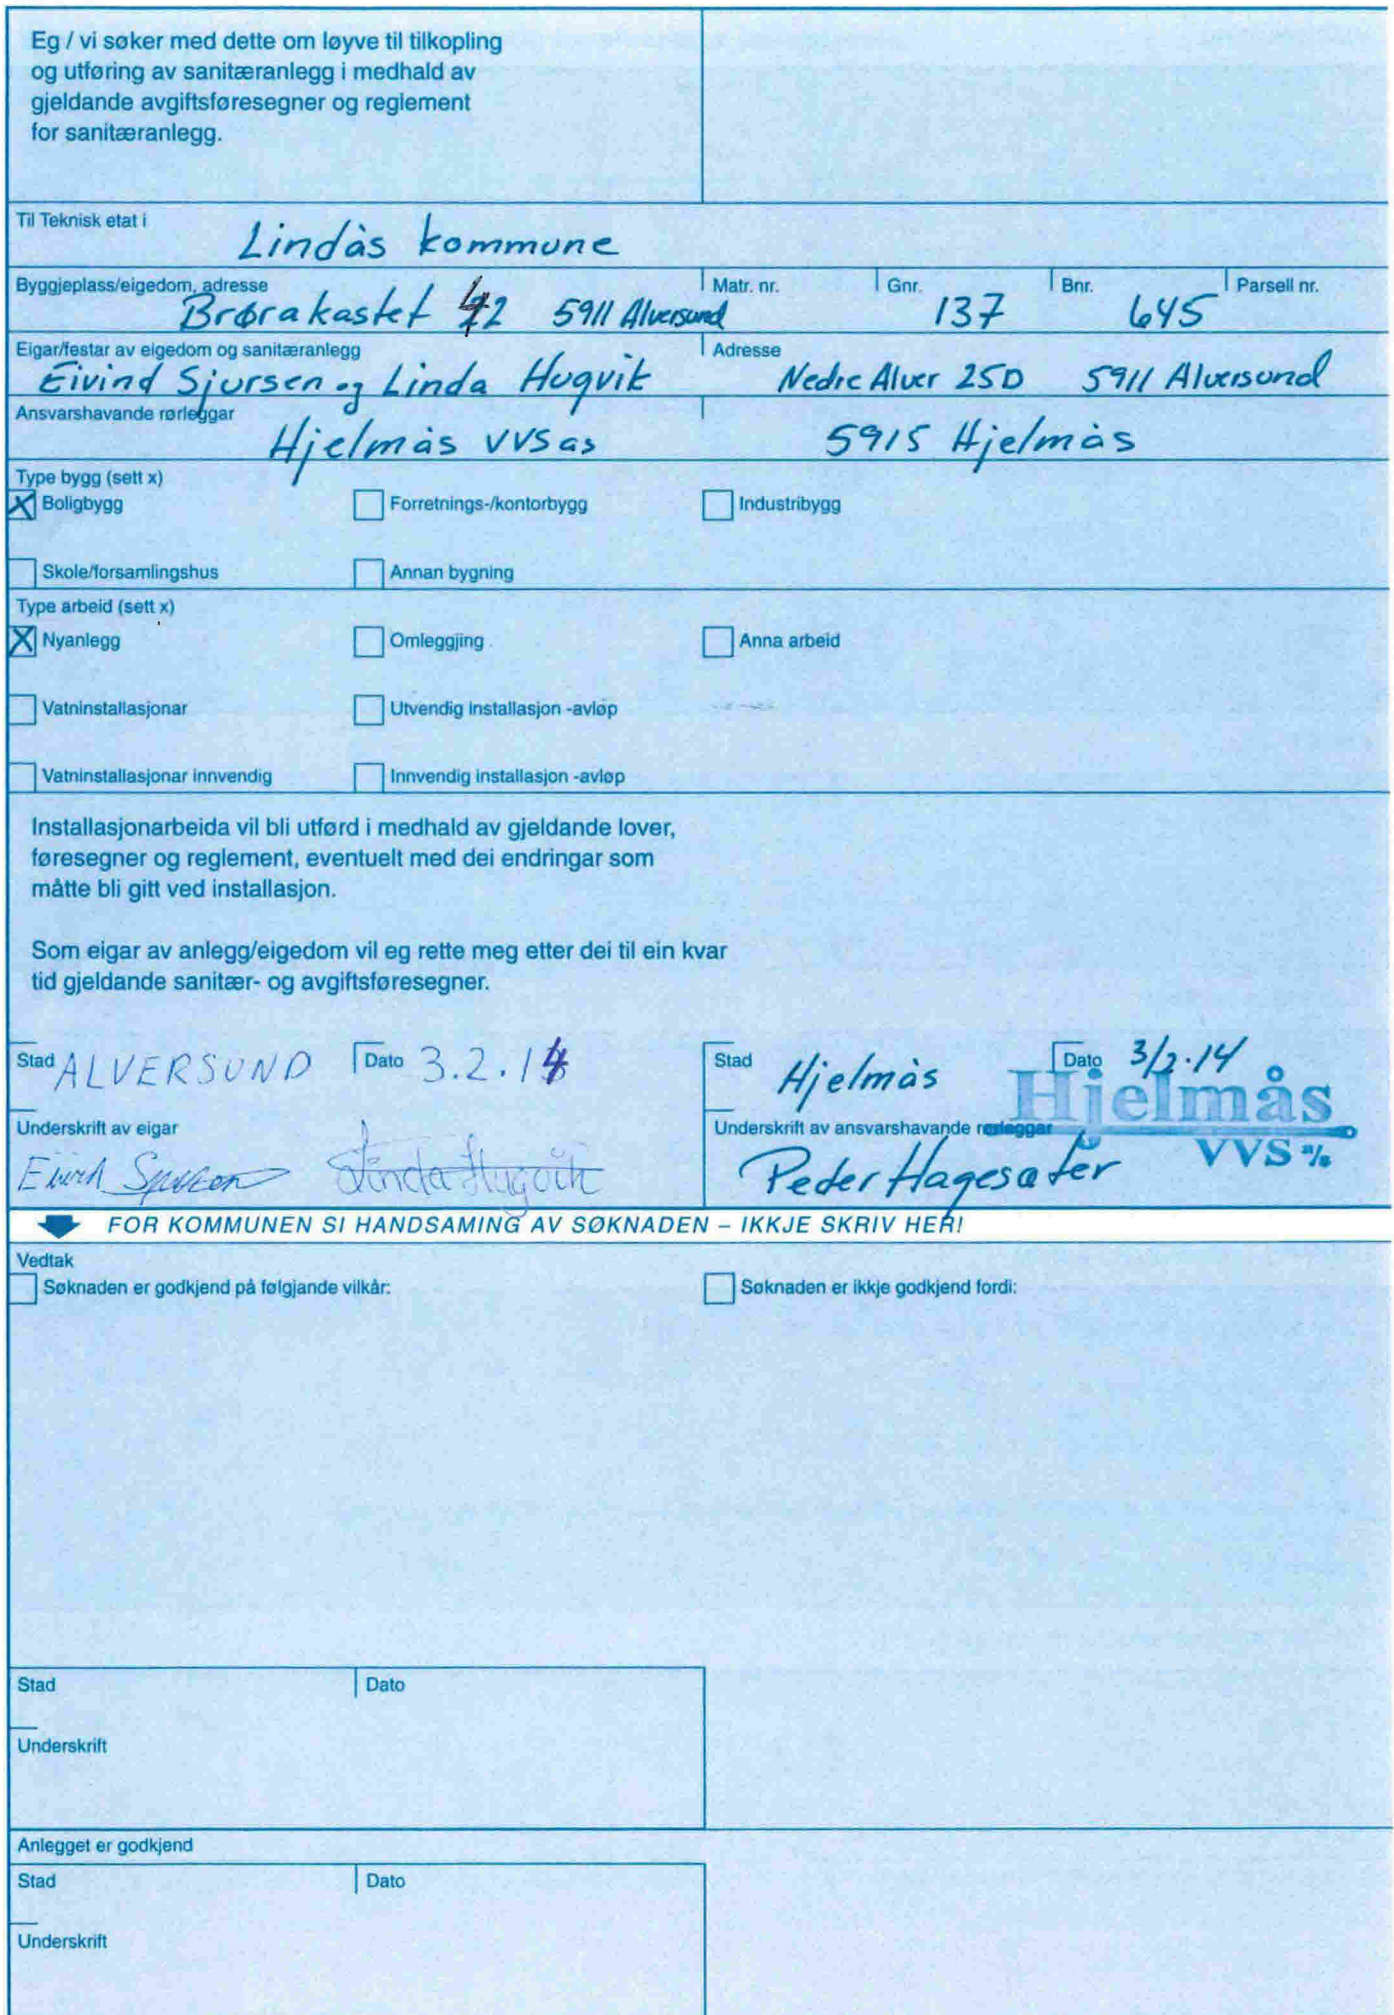 Eg / vi søker med dette om løyve til tilkopling
og utføring av sanitæranlegg i medhald av
gjeldande avgiftsføresegner og reglement
for sanitæranlegg.
Til Teknisk etat i
Lindås kommune
Byggjeplass/eigedom, adresse
Brørakastet 42 5911 Alversund
Matr. nr.
Gnr.
137
Bnr.
645
Parsell nr.
Eigar/festar av eigedom og sanitæranlegg
Eivind Sjursen og Linda Hugvik
Adresse
Nedre Alver 25D 5911 Alversund
Ansvarshavande rørleggar
Hjelmås VVS as
5915 Hjelmås
Type bygg (sett x)
X Boligbygg
Forretnings-/kontorbygg
Industribygg
Skole/forsamlingshus
Annan bygning
Type arbeid (sett x)
X Nyanlegg
Omleggjing
Anna arbeid
Vatninstallasjonar
Utvendig installasjon -avløp
Vatninstallasjonar innvendig
Innvendig installasjon -avløp
Installasjonarbeida vil bli utførd i medhald av gjeldande lover,
føresegner og reglement, eventuelt med dei endringar som
måtte bli gitt ved installasjon.
Som eigar av anlegg/eigedom vil eg rette meg etter dei til ein kvar
tid gjeldande sanitær- og avgiftsføresegner.
Stad ALVERSUND
Dato 3.2.14
Stad Hjelmås
Dato 3/2.14
Hjelmås
VVS a/s
Underskrift av eigar
Eivind Sjursen Linda Hugvik
Underskrift av ansvarshavande rørleggar
Peder Hagesæter
FOR KOMMUNEN SI HANDSAMING AV SØKNADEN – IKKJE SKRIV HER!
Vedtak
Søknaden er godkjend på følgjande vilkår:
Søknaden er ikkje godkjend fordi:
Stad
Dato
Underskrift
Anlegget er godkjend
Stad
Dato
Underskrift